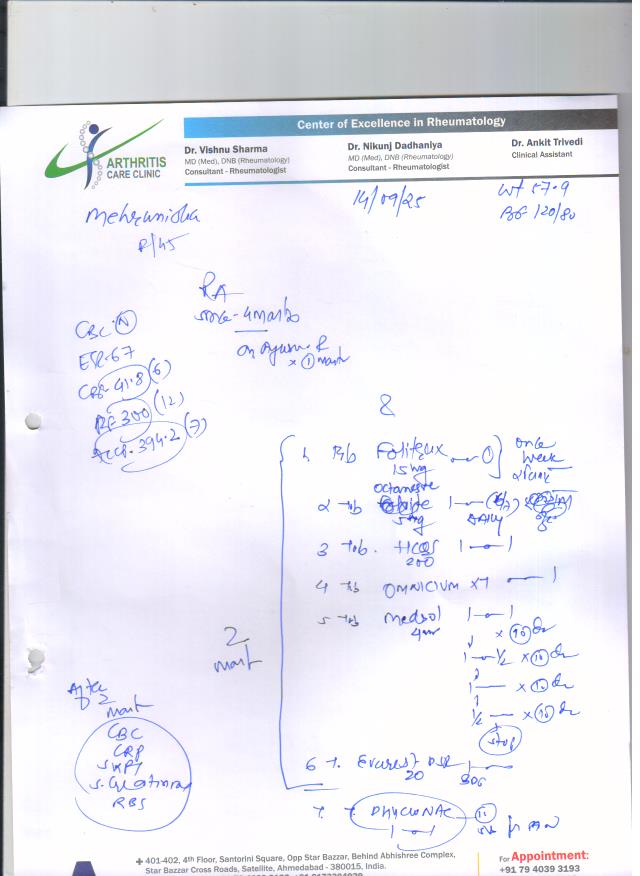 Center of Excellence in Rheumatology
ARTHRITIS
CARE CLINIC
Dr. Vishnu Sharma
MD (Med), DNB (Rheumatology)
Consultant - Rheumatologist
Dr. Nikunj Dadhaniya
MD (Med), DNB (Rheumatology)
Consultant - Rheumatologist
Dr. Ankit Trivedi
Clinical Assistant
Mehrunisha
F/45
14/09/25
Wt 57.9
BP 120/80
RA
since - 4 months
on Ayurve
x 1 month
CBC - N
ESR - 67
CRP - 41.8 (6)
RF - 300 (12)
ACCP - 394.2 (7)
1. Tab Folitrax 15 mg 1 once week
2 Tab 5 mg 1 (6/7) DAILY
3 Tab. HCQS 200 1 - 1
4 Tab OMNICIUM XT 1
5 Tab Medsol 4 1 - 1 x 10
1 - 1/2 x 10
1 x 10
1/2 x 10
Stop
6 T. DSR 20
7. T. 1 - 1
2
After 2
CBC
CRP
S. Creatinine
RBS
401-402, 4th Floor, Santorini Square, Opp Star Bazzar, Behind Abhishree Complex,
Star Bazzar Cross Roads, Satellite, Ahmedabad - 380015, India.
For Appointment:
+91 79 4039 3193